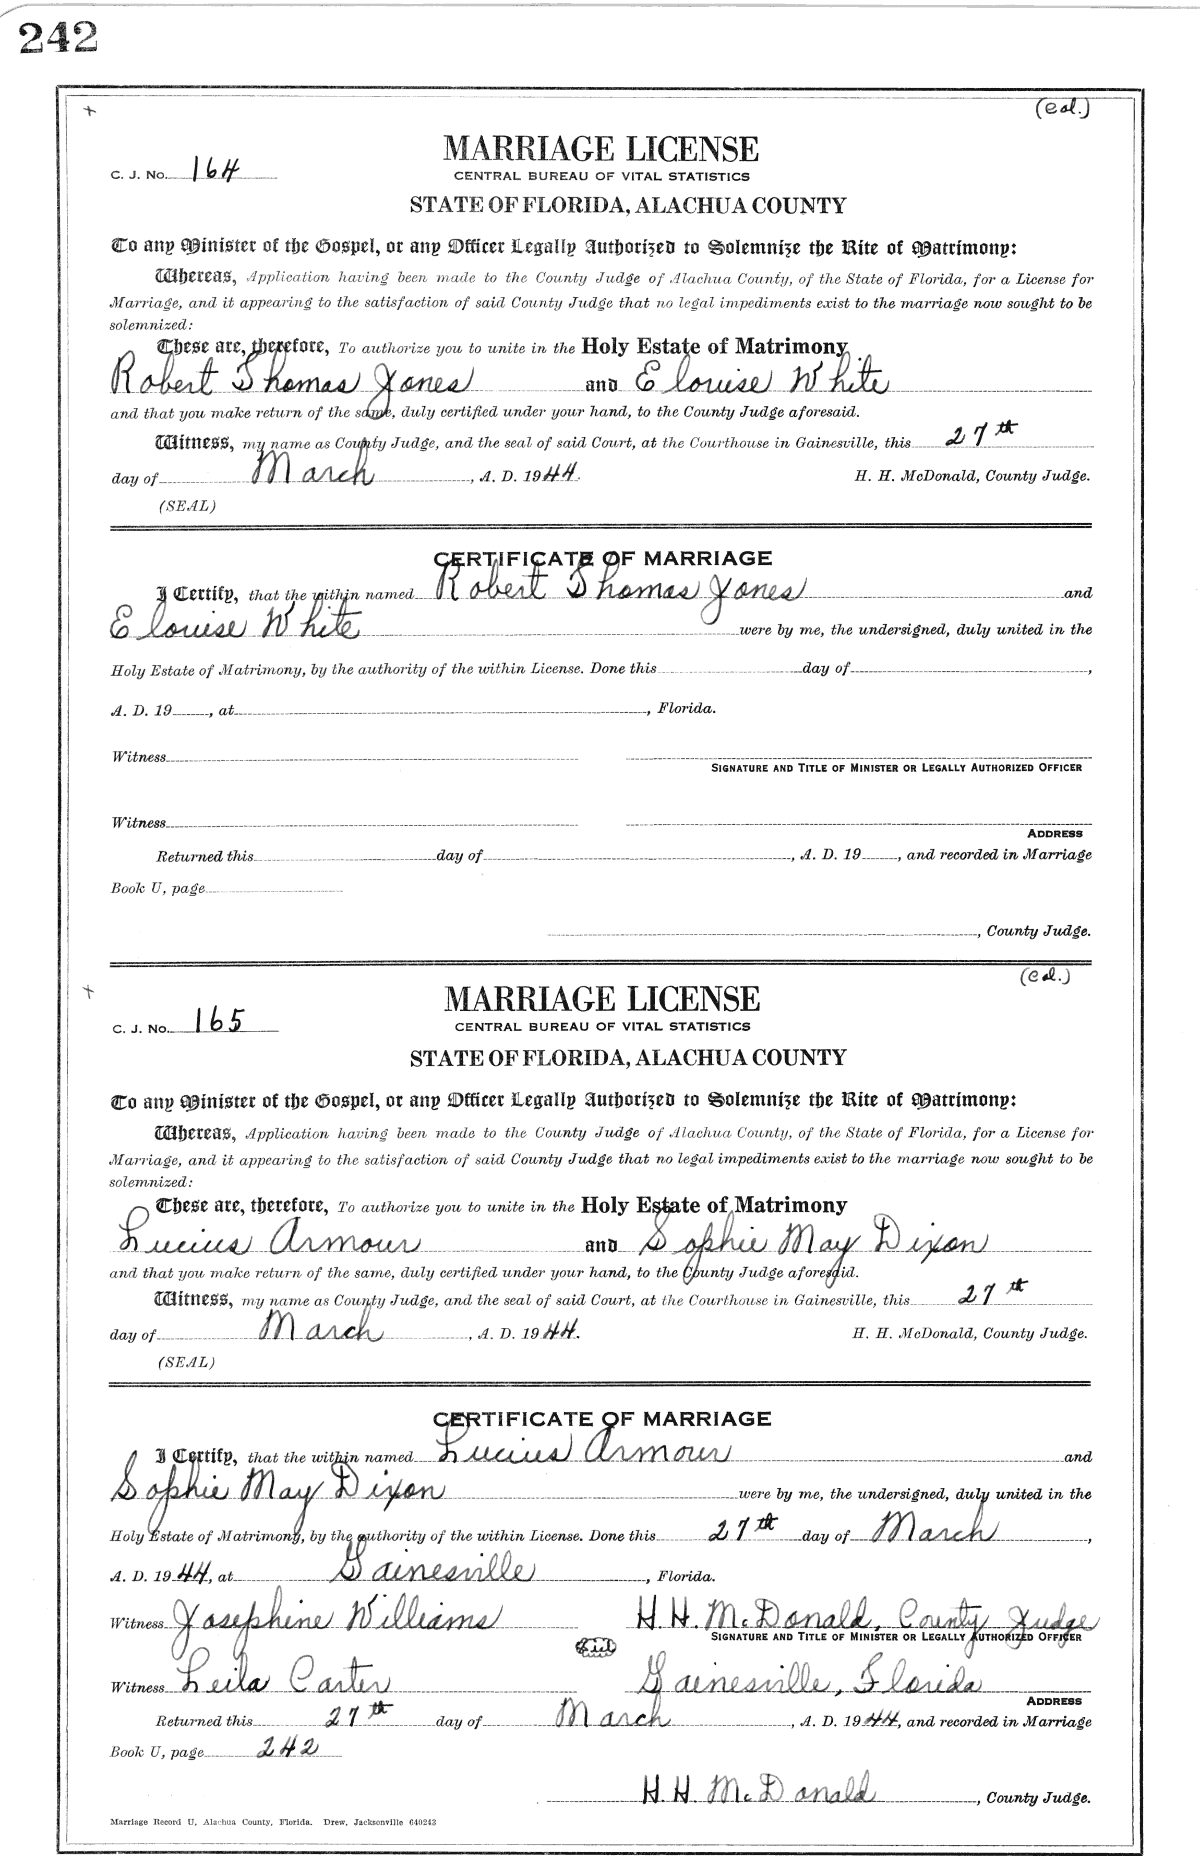 242
+ (Col.)
MARRIAGE LICENSE
C. J. No. 164
CENTRAL BUREAU OF VITAL STATISTICS
STATE OF FLORIDA, ALACHUA COUNTY
To any Minister of the Gospel, or any Officer Legally Authorized to Solemnize the Rite of Matrimony:
Whereas, Application having been made to the County Judge of Alachua County, of the State of Florida, for a License for
Marriage, and it appearing to the satisfaction of said County Judge that no legal impediments exist to the marriage now sought to be
solemnized:
These are, therefore, To authorize you to unite in the Holy Estate of Matrimony
Robert Thomas Jones and Elouise White
and that you make return of the same, duly certified under your hand, to the County Judge aforesaid.
Witness, my name as County Judge, and the seal of said Court, at the Courthouse in Gainesville, this 27th
day of March, A. D. 1944. H. H. McDonald, County Judge.
(SEAL)
CERTIFICATE OF MARRIAGE
I Certify, that the within named Robert Thomas Jones and
Elouise White were by me, the undersigned, duly united in the
Holy Estate of Matrimony, by the authority of the within License. Done this day of ,
A. D. 19 , at , Florida.
Witness
SIGNATURE AND TITLE OF MINISTER OR LEGALLY AUTHORIZED OFFICER
Witness
ADDRESS
Returned this day of , A. D. 19 , and recorded in Marriage
Book U, page
, County Judge.
+ (Col.)
MARRIAGE LICENSE
C. J. No. 165
CENTRAL BUREAU OF VITAL STATISTICS
STATE OF FLORIDA, ALACHUA COUNTY
To any Minister of the Gospel, or any Officer Legally Authorized to Solemnize the Rite of Matrimony:
Whereas, Application having been made to the County Judge of Alachua County, of the State of Florida, for a License for
Marriage, and it appearing to the satisfaction of said County Judge that no legal impediments exist to the marriage now sought to be
solemnized:
These are, therefore, To authorize you to unite in the Holy Estate of Matrimony
Lucius Armour and Sophie May Dixon
and that you make return of the same, duly certified under your hand, to the County Judge aforesaid.
Witness, my name as County Judge, and the seal of said Court, at the Courthouse in Gainesville, this 27th
day of March, A. D. 1944. H. H. McDonald, County Judge.
(SEAL)
CERTIFICATE OF MARRIAGE
I Certify, that the within named Lucius Armour and
Sophie May Dixon were by me, the undersigned, duly united in the
Holy Estate of Matrimony, by the authority of the within License. Done this 27th day of March,
A. D. 1944, at Gainesville, Florida.
Witness Josephine Williams H. H. McDonald, County Judge
SIGNATURE AND TITLE OF MINISTER OR LEGALLY AUTHORIZED OFFICER
Witness Leila Carter Gainesville, Florida
ADDRESS
Returned this 27th day of March, A. D. 1944, and recorded in Marriage
Book U, page 242
H. H. McDonald, County Judge.
Marriage Record U, Alachua County, Florida. Drew, Jacksonville 640243